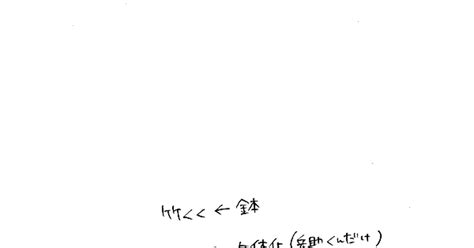 竹くく ← 鉢
体化(兵助くんだけ)